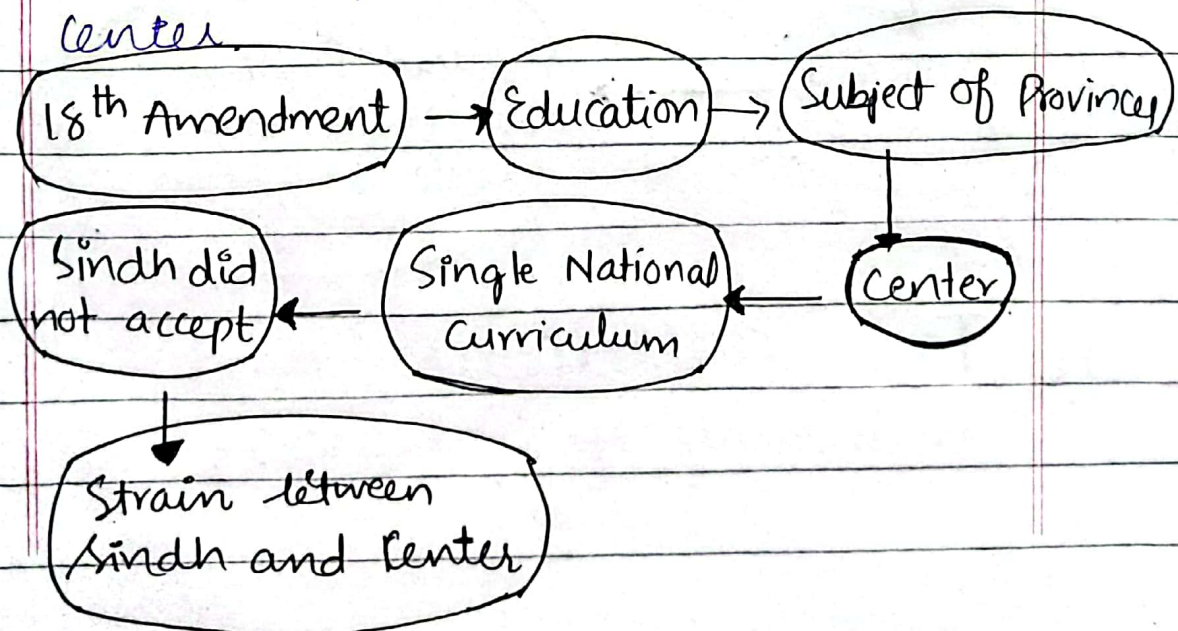 center.
18th Amendment
Education
Subject of Provinces
Center
Single National
Curriculum
Sindh did
not accept
Strain between
Sindh and Center